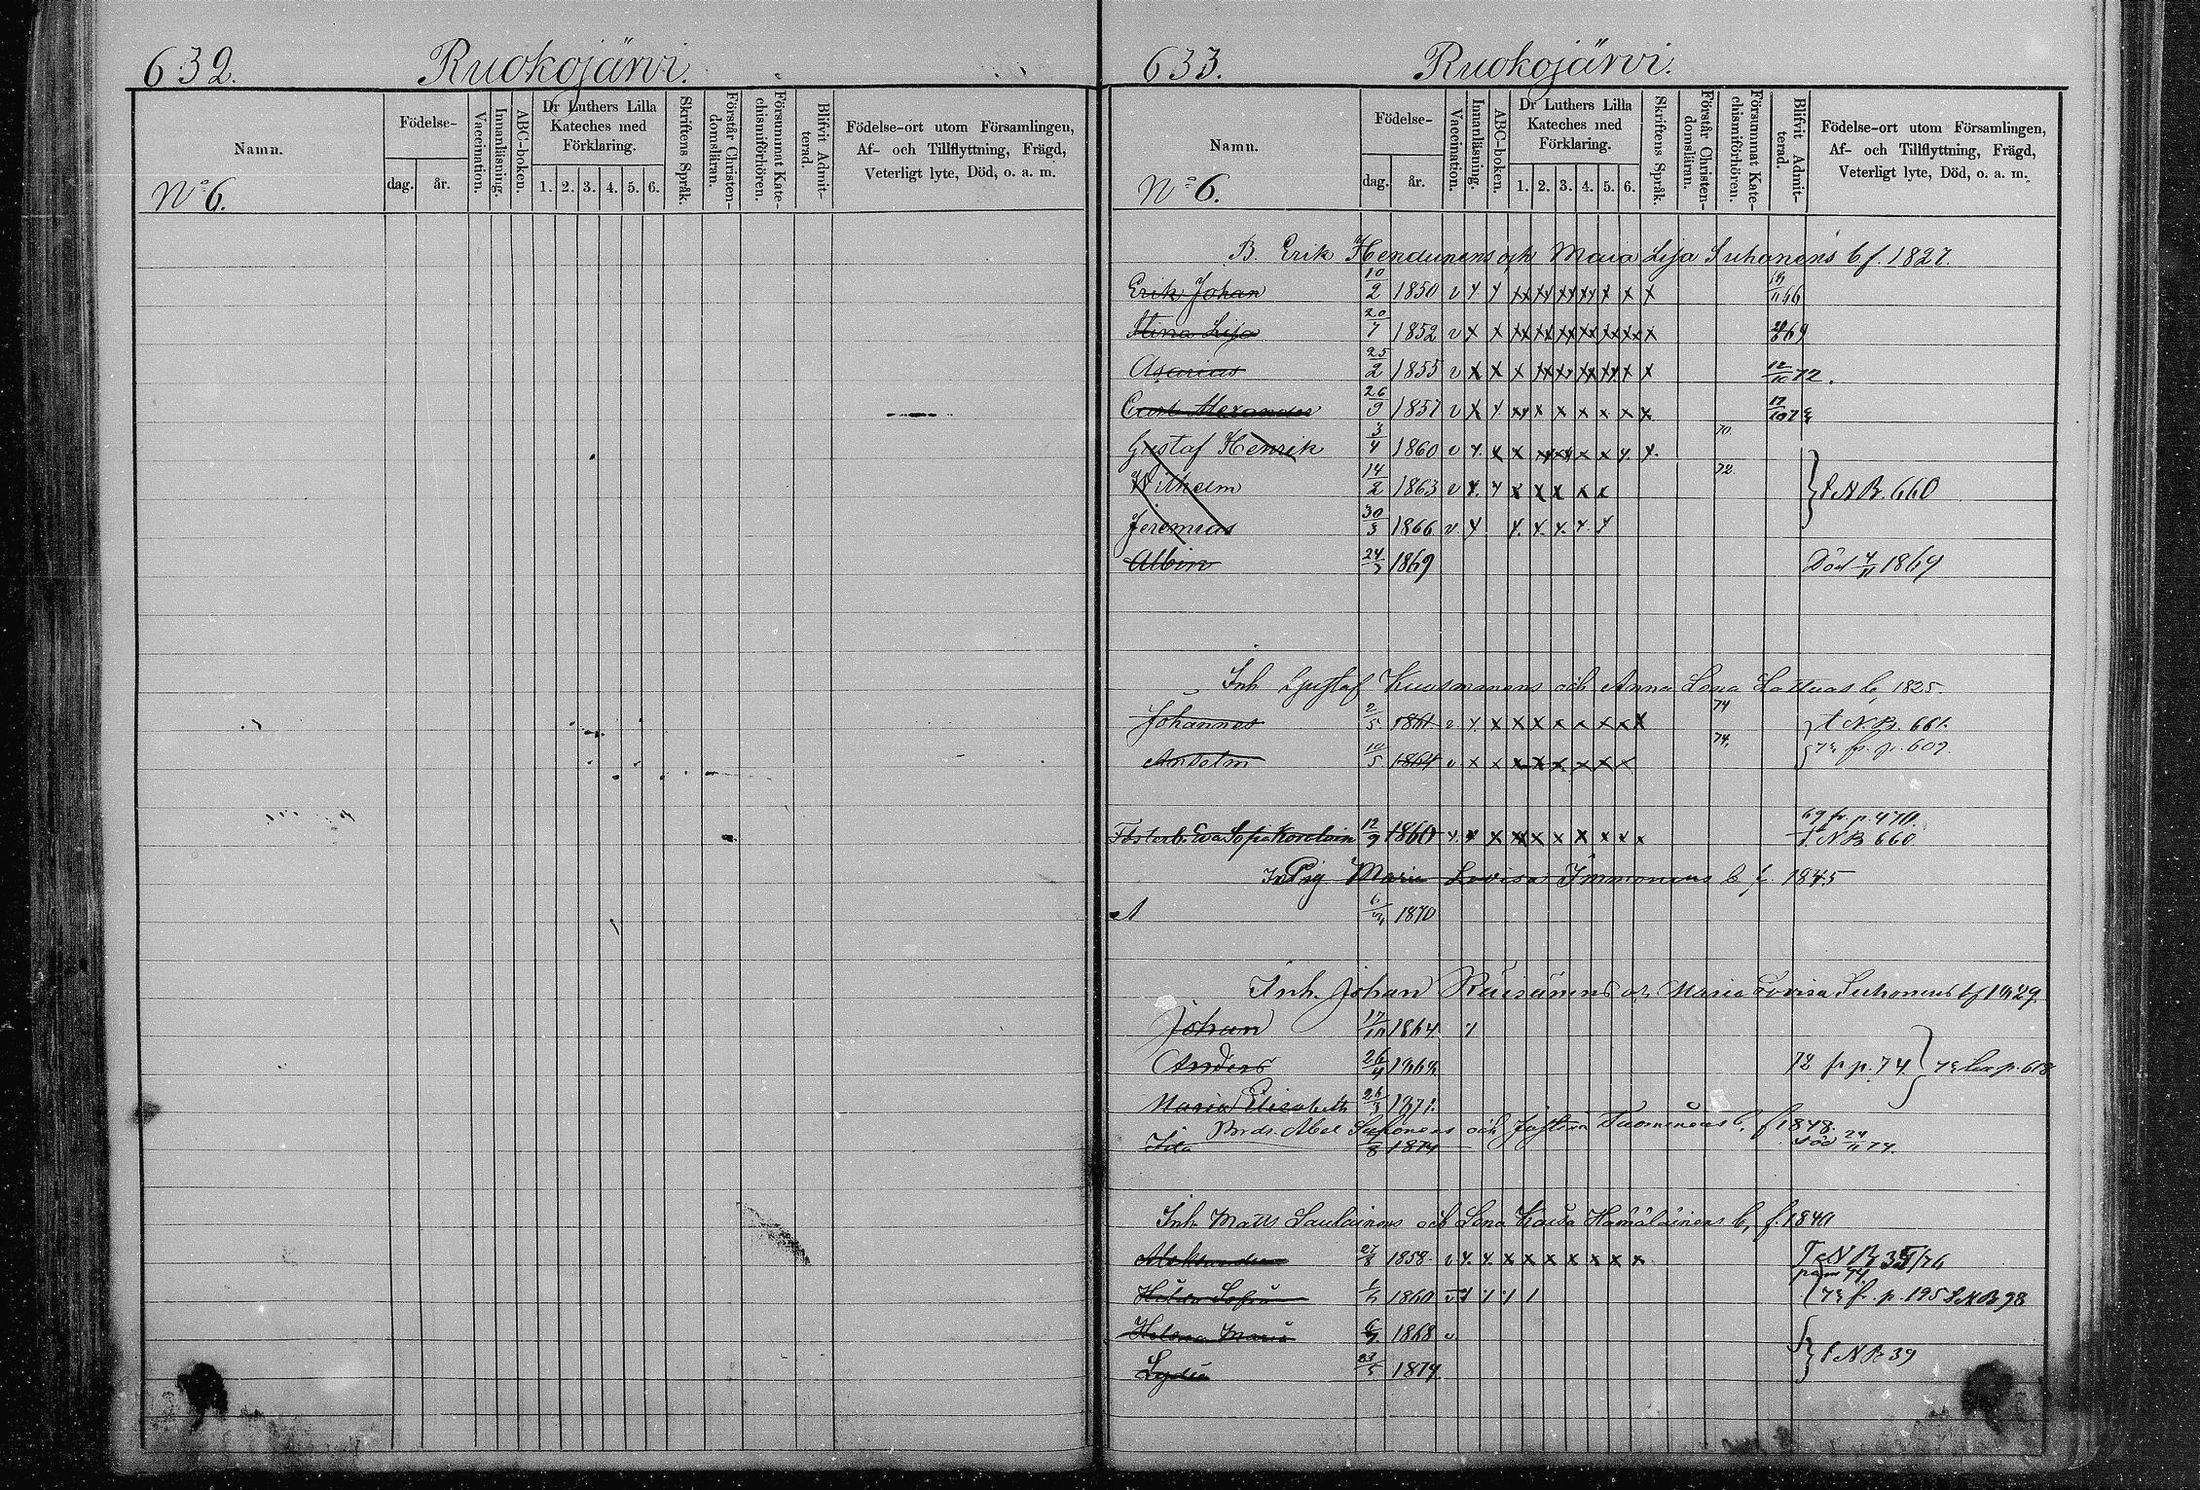 632. Ruokojärvi.
Namn.
Födelse-
dag. år.
Vaccination.
Innanläsning.
ABC-boken.
Dr Luthers Lilla
Kateches med
Förklaring.
1. 2. 3. 4. 5. 6.
Skriftens Språk.
Förstår Christen-
domsläran.
Försummat Kate-
chismiförhören.
Blifvit Admit-
terad.
Födelse-ort utom Församlingen,
Af- och Tillflyttning, Frägd,
Veterligt lyte, Död, o. a. m.
No 6.
633. Ruokojärvi.
Namn.
Födelse-
dag. år.
Vaccination.
Innanläsning.
ABC-boken.
Dr Luthers Lilla
Kateches med
Förklaring.
1. 2. 3. 4. 5. 6.
Skriftens Språk.
Förstår Christen-
domsläran.
Försummat Kate-
chismiförhören.
Blifvit Admit-
terad.
Födelse-ort utom Församlingen,
Af- och Tillflyttning, Frägd,
Veterligt lyte, Död, o. a. m.
No 6.
B. Erik och Maria Lisa Suhonens b f. 1827.
Erik Johan 10/2 1850 v x x xx xx xx xx x x x
Stina Lisa 20/7 1852 v x x xx xx xx xx xx xx x 69
Asarias 25/2 1855 v x x x xx xx xx xx x x 12/10 72.
Carl Alexander 26/9 1857 v x x xx x x x x x x
Gustaf Henrik 3/4 1860 v x x x xx xx x x x x 70.
Wilhelm 14/2 1863 v x x x x x x x 72. } t NB. 660
Jeremias 30/3 1866 v x x x x x x
Albin 24/3 1869 Död 4/11 1869
Inh Gustaf Kuusmanens och Anna Lena Lattuas b, 1825.
Johannes 2/5 1861 v x x x x x x x x x 74 } t NB. 661.
Anselm 10/5 1864 v x x x x x x x x 74, fr. p. 607
69 fr. p. 470.
Fosterb. Eva Sofia 12/9 1860 x x x xx x x x x x x t NB 660
Inh Pig Maria Lovisa Immonens b f. 1845
A 1870
Inh. Johan och Maria Lovisa Suhonens b f 1829.
Johan 17/10 1864. x
Anders 26/4 72 fr p. 74 } p. 618
Maria Elisabeth 1871.
Abel Suhonens och Justina Tuominens b, f 1848.
Ida 1874 Död 24/11 74.
Inh. Matts Laulainens och Lena Kaisa Hämäläinens b, f. 1840
Aleksander 27/8 1858. v x x x x x x x x x
Hilda Sofia 1860 fr. p. 195
Helena Maria 1868 v
Lydia 23/5 1874 } t NB 39